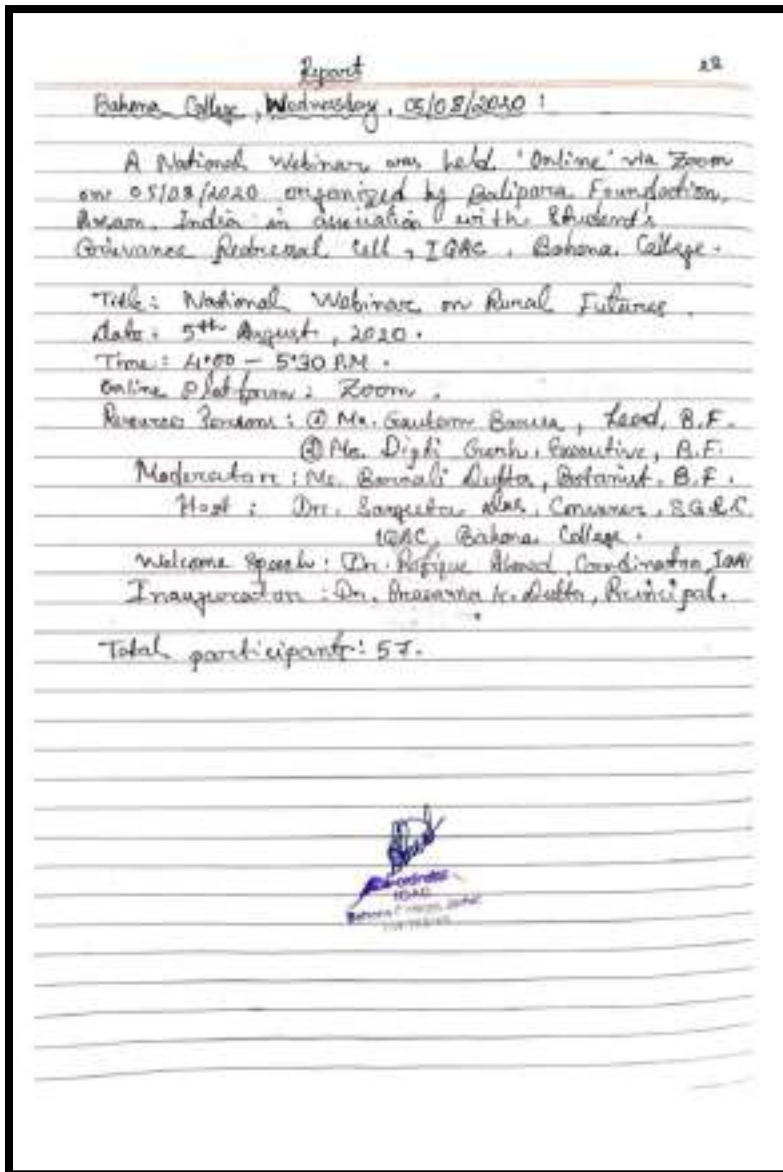 Report
Bahona College, Wednesday, 05/08/2020 :
A National Webinar was held 'Online' via Zoom
on 05/08/2020 organized by Balipara Foundation,
Assam, India in association with Student's
Grievance Redressal Cell, IQAC, Bahona College.
Title: National Webinar on Rural Futures.
Date: 5th August, 2020.
Time: 4:00 - 5:30 P.M.
Online Platform: Zoom.
Resource Persons: ① Mr. Gautam Barua, Lead, B.F.
② Ms. Executive, B.F.
Moderator: Ms. Barnali Dutta, Botanist, B.F.
Host: Dr. Sangeeta Das, Convenor, S.G.R.C
IQAC, Bahona College.
Welcome Speech: Dr. Rafique Ahmed, Coordinator, IQAC
Inauguration: Dr. Prasanna K. Dutta, Principal.
Total participants: 57.
Co-ordinator
IQAC
Bahona College, Jorhat